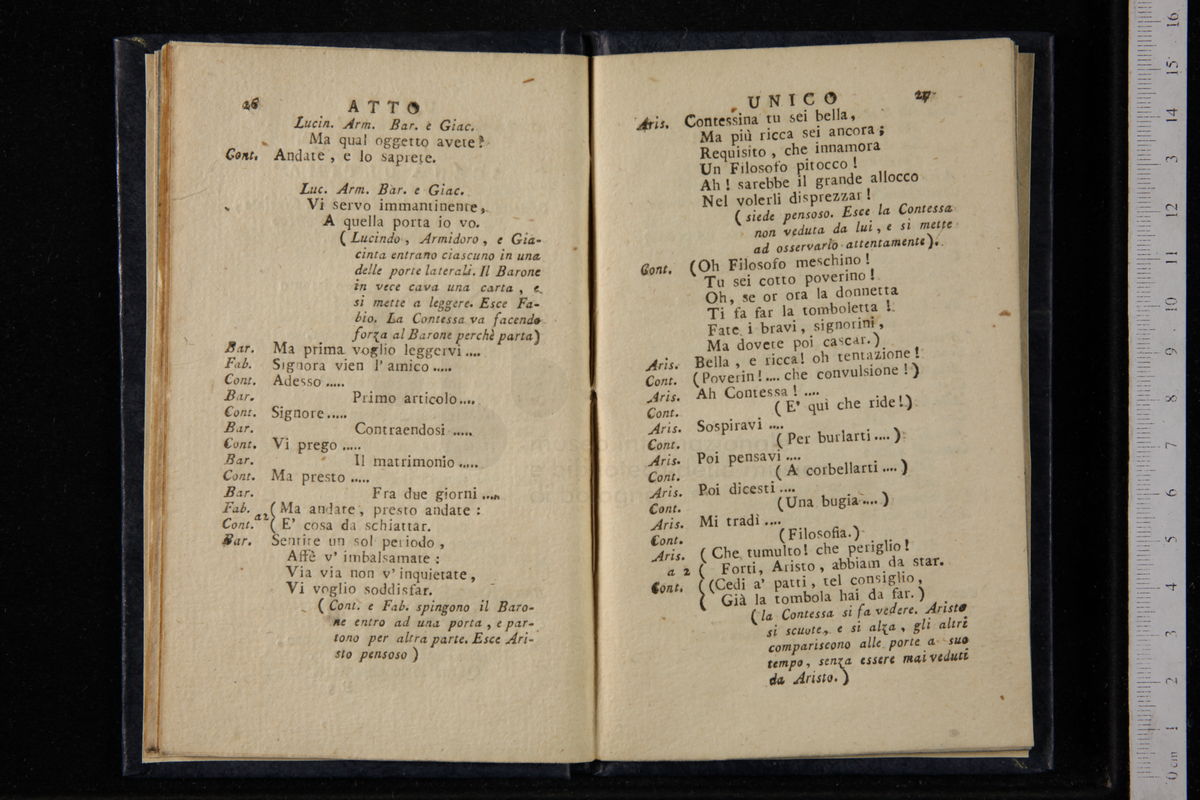 26 ATTO
Lucin. Arm. Bar. e Giac.
Ma qual oggetto avete?
Cont. Andate, e lo saprete.
Luc. Arm. Bar. e Giac.
Vi servo immantinente,
A quella porta io vo.
(Lucindo, Armidoro, e Gia-
cinta entrano ciascuno in una
delle porte laterali. Il Barone
in vece cava una carta, e
si mette a leggere. Esce Fa-
bio. La Contessa va facendo
forza al Barone perchè parta)
Bar. Ma prima voglio leggervi....
Fab. Signora vien l'amico.....
Cont. Adesso.....
Bar. Primo articolo....
Cont. Signore.....
Bar. Contraendosi.....
Cont. Vi prego.....
Bar. Il matrimonio.....
Cont. Ma presto.....
Bar. Fra due giorni.....
Fab. (Ma andate, presto andate:
Cont. a2 (E' cosa da schiattar.
Bar. Sentite un sol periodo,
Affè v'imbalsamate:
Via via non v'inquietate,
Vi voglio soddisfar.
(Cont. e Fab. spingono il Baro-
ne entro ad una porta, e par-
tono per altra parte. Esce Ari-
sto pensoso)
UNICO 27
Aris. Contessina tu sei bella,
Ma più ricca sei ancora;
Requisito, che innamora
Un Filosofo pitocco!
Ah! sarebbe il grande allocco
Nel volerli disprezzar!
(siede pensoso. Esce la Contessa
non veduta da lui, e si mette
ad osservarlo attentamente).
Cont. (Oh Filosofo meschino!
Tu sei cotto poverino!
Oh, se or ora la donnetta
Ti fa far la tomboletta!
Fate i bravi, signorini,
Ma dovete poi cascar.)
Aris. Bella, e ricca! oh tentazione!
Cont. (Poverin!.... che convulsione!)
Aris. Ah Contessa!....
Cont. (E' quì che ride!)
Aris. Sospiravi....
Cont. (Per burlarti....)
Aris. Poi pensavi....
Cont. (A corbellarti....)
Aris. Poi dicesti....
Cont. (Una bugia....)
Aris. Mi tradì....
Cont. (Filosofia.)
Aris. (Che tumulto! che periglio!
a 2 ( Forti, Aristo, abbiam da star.
Cont. ((Cedi a' patti, tel consiglio,
( Già la tombola hai da far.)
(la Contessa si fa vedere. Aristo
si scuote, e si alza, gli altri
compariscono alle porte a suo
tempo, senza essere mai veduti
da Aristo.)
0 cm 1 2 3 4 5 6 7 8 9 10 11 12 13 14 15 16